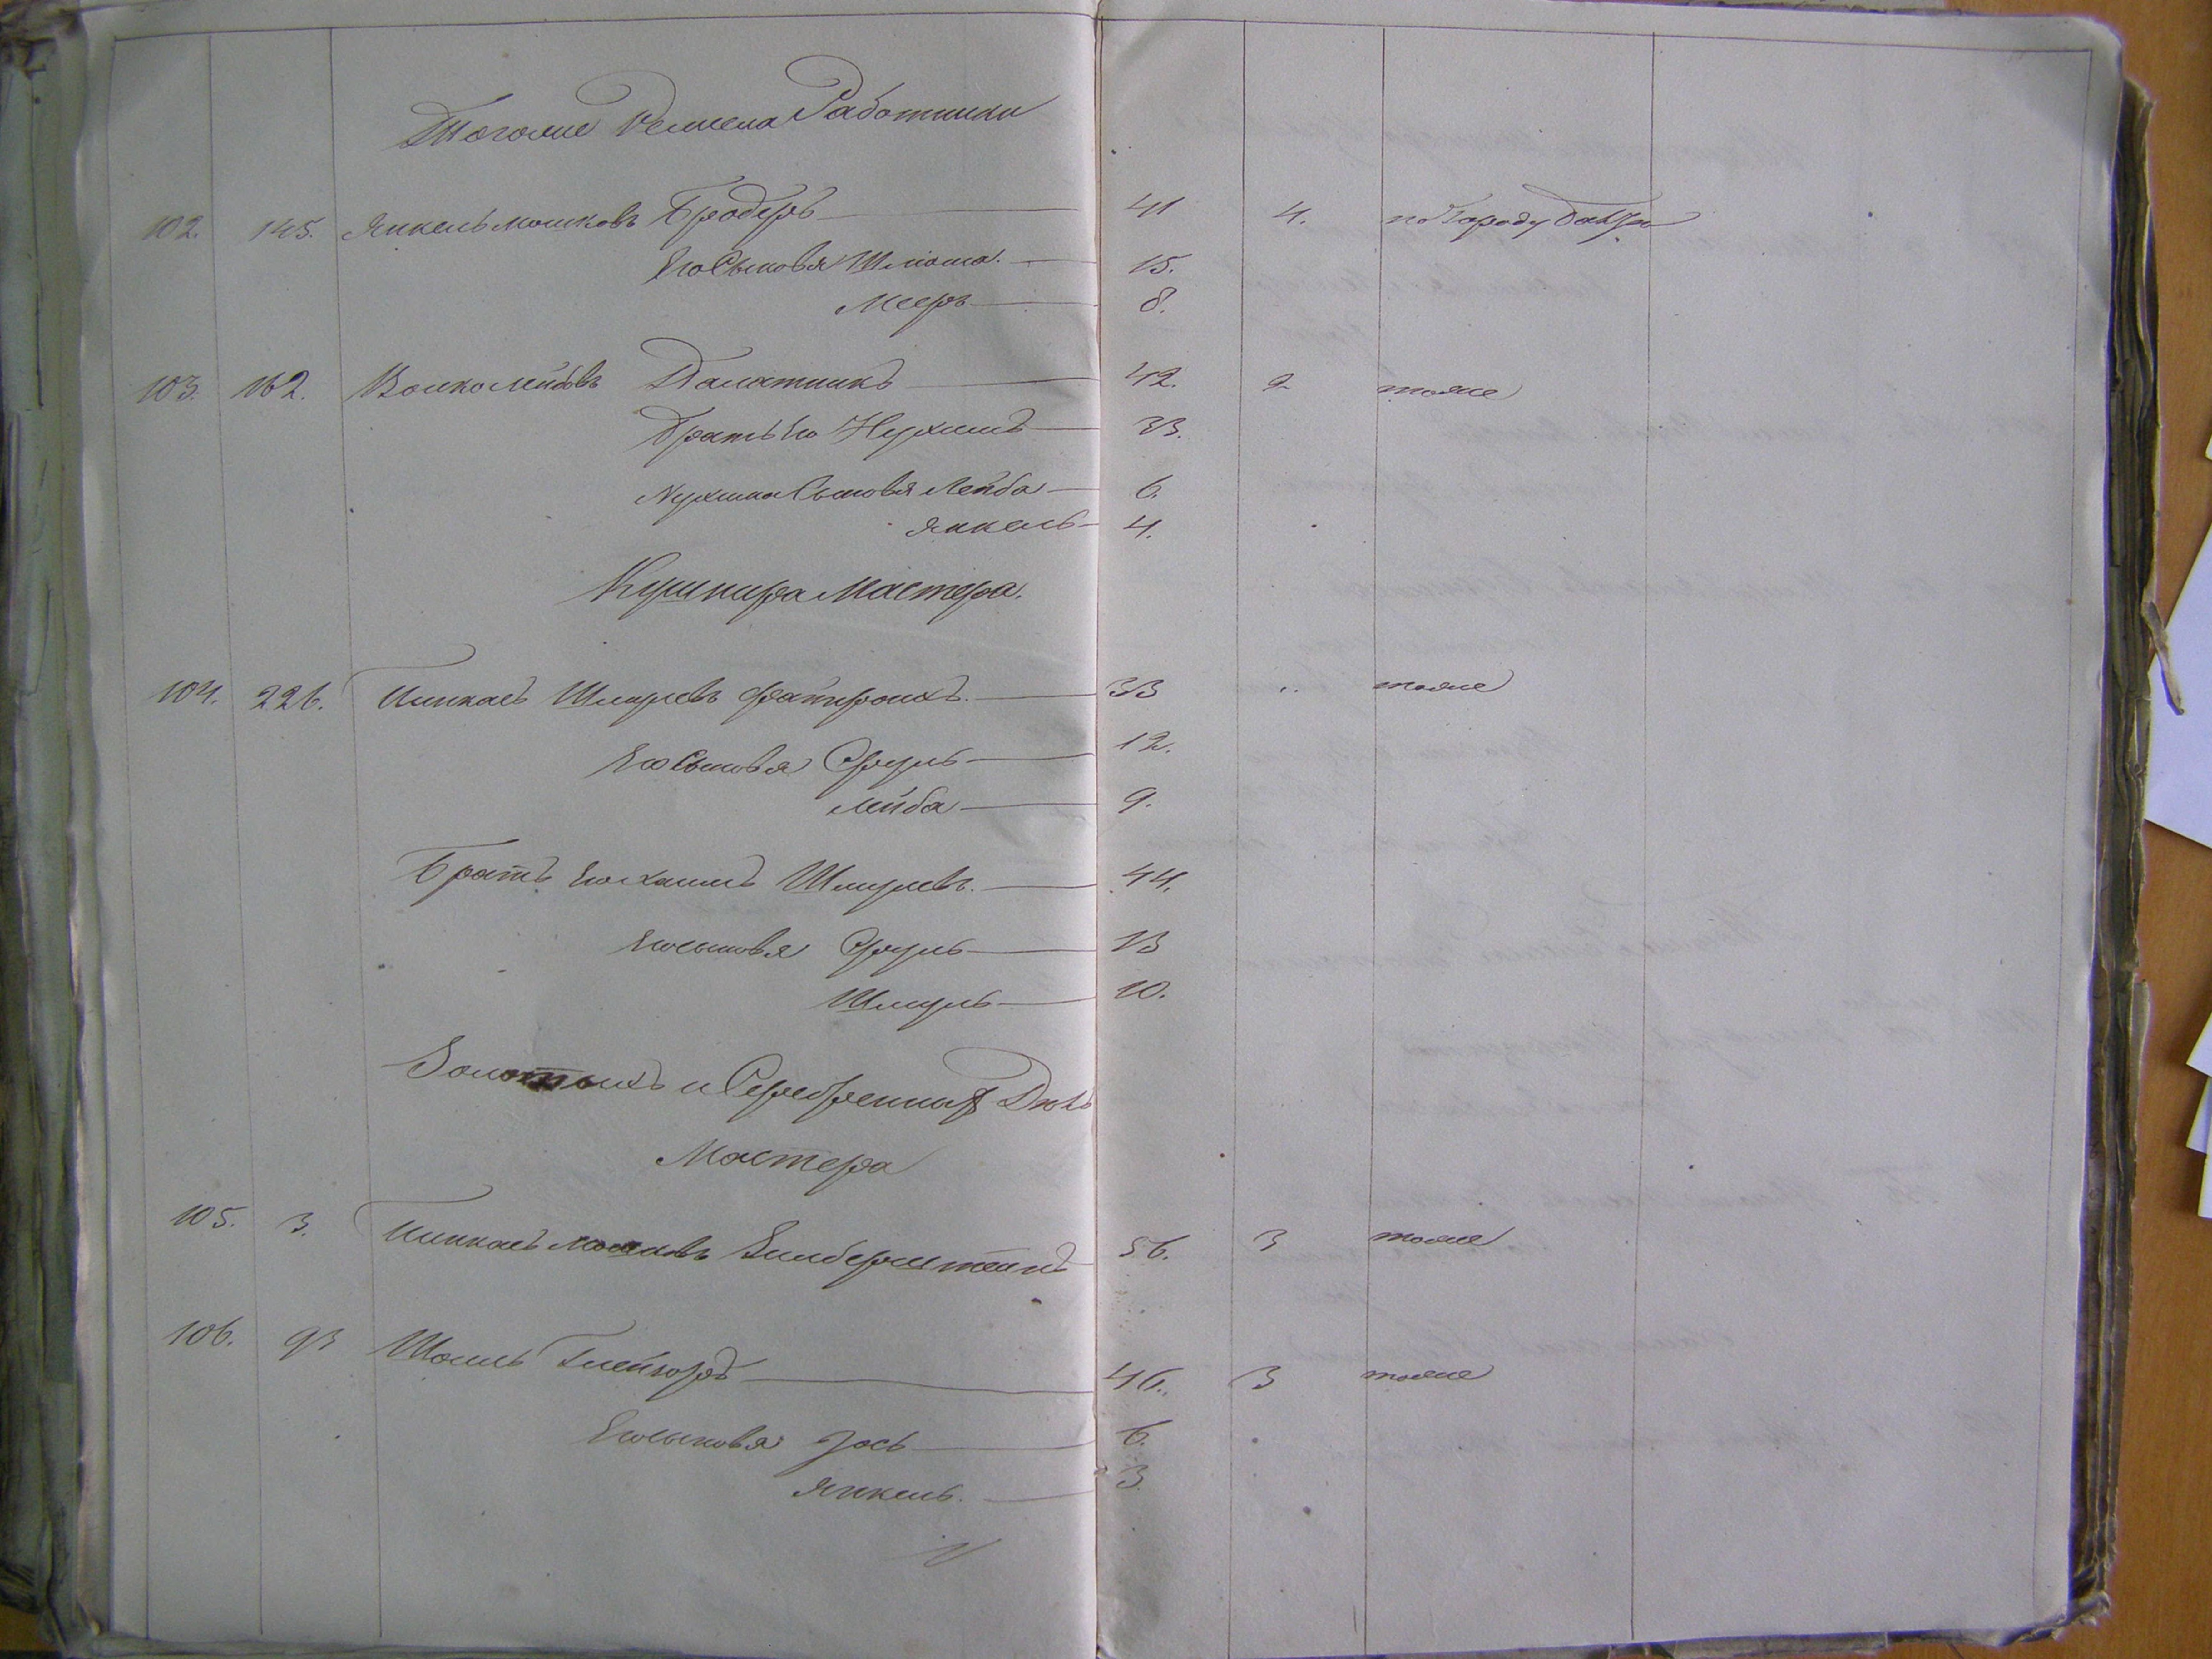 Тогоже Ремесла Работники
102. 145. Янкель Мошковъ Бродеръ 41 4. по Городу Балтѣ
Его Сыновья Шлиома. 15.
Мееръ 8.
103. 162. Волко Лейбовъ Палатникъ 42. 2 тоже
Братъ Его Нухимъ 33.
Нухима Сыновья Лейба 6.
Янкель 4.
Кушнира Мастера.
104. 226. Пинкасъ Шмулевъ 33 „ тоже
Его Сыновья Сруль 12.
Лейба 9.
Братъ Его Хаимъ Шмулевъ. 44.
Его сыновья Сруль 13
Шмуль 10.
Золотыхъ и Серебренныхъ Делъ
Мастера
105. 3. Пинкасъ Мошковъ Зильберштейнъ 56. 3 тоже
106. 93 Шмиль 46. 3 тоже
Его сыновья Іось 6.
Янкель. 3.